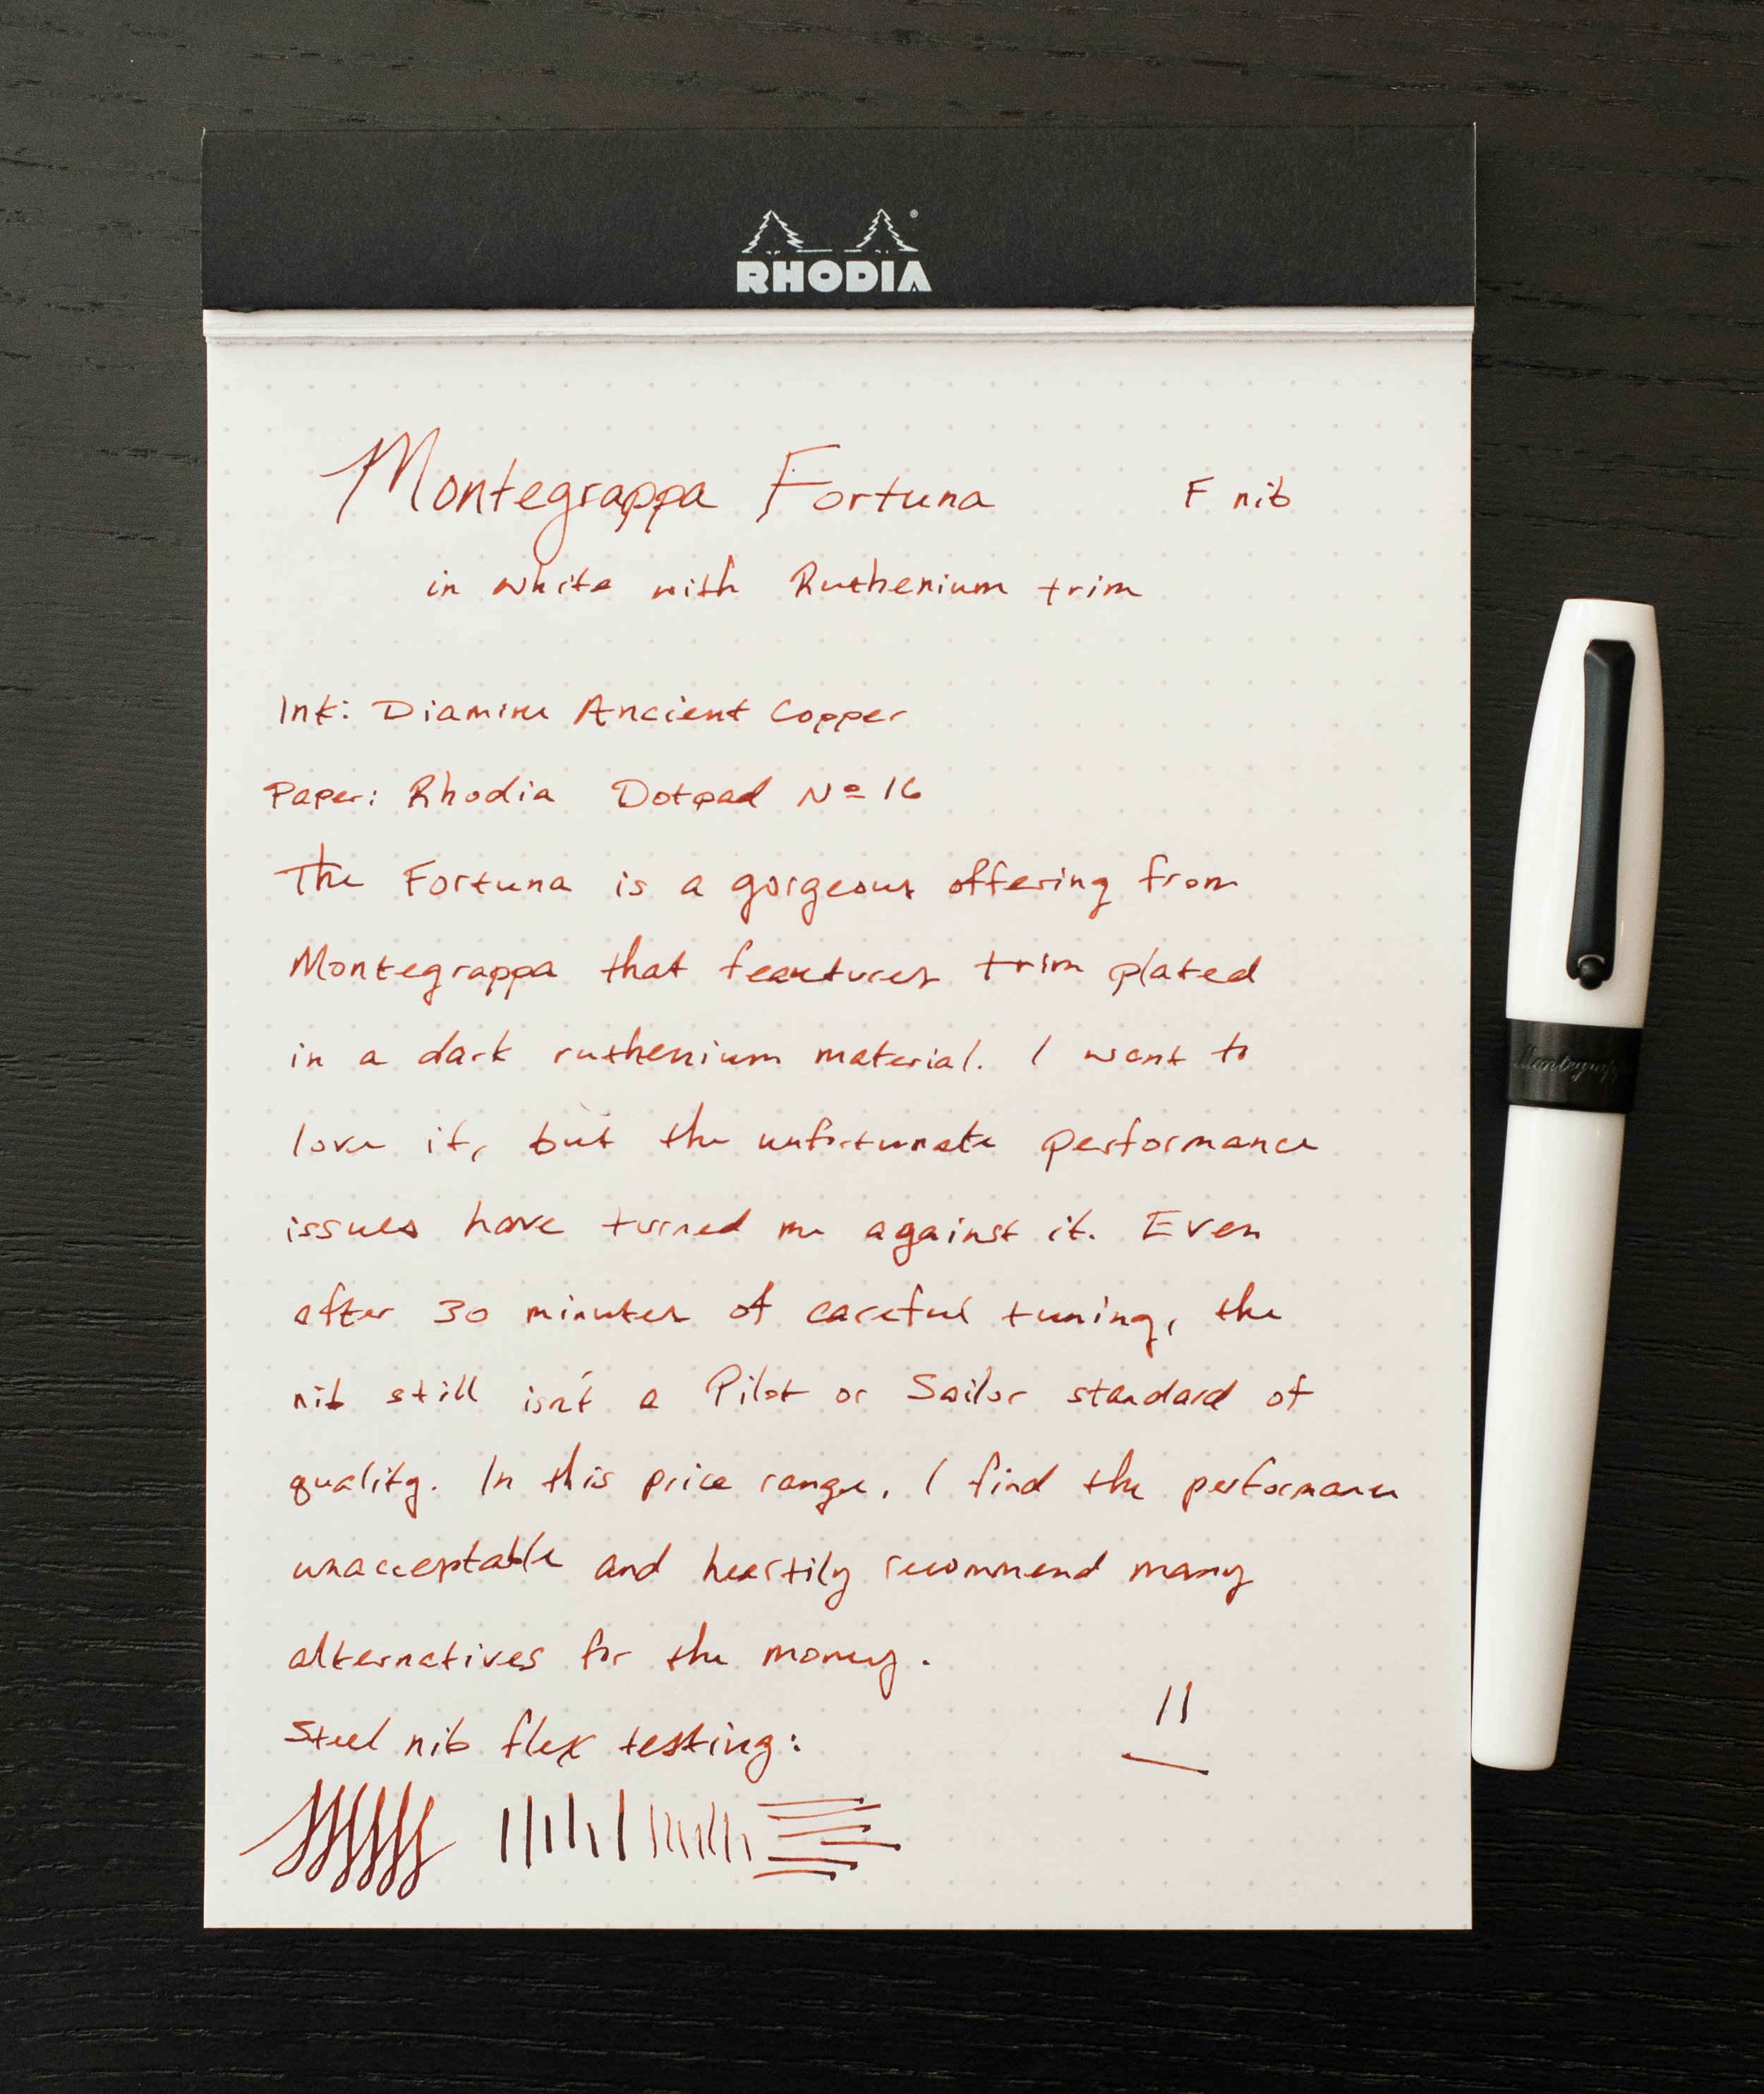 RHODIA
Montegrappa Fortuna F nib
in white with Ruthenium trim
Ink: Diamine Ancient Copper
Paper: Rhodia Dotpad Nº 16
The Fortuna is a gorgeous offering from
Montegrappa that features trim plated
in a dark ruthenium material. I want to
love it, but the unfortunate performance
issues have turned me against it. Even
after 30 minutes of careful tuning, the
nib still isn't a Pilot or Sailor standard of
quality. In this price range, I find the performance
unacceptable and heartily recommend many
alternatives for the money.
Steel nib flex testing:
Montegrappa